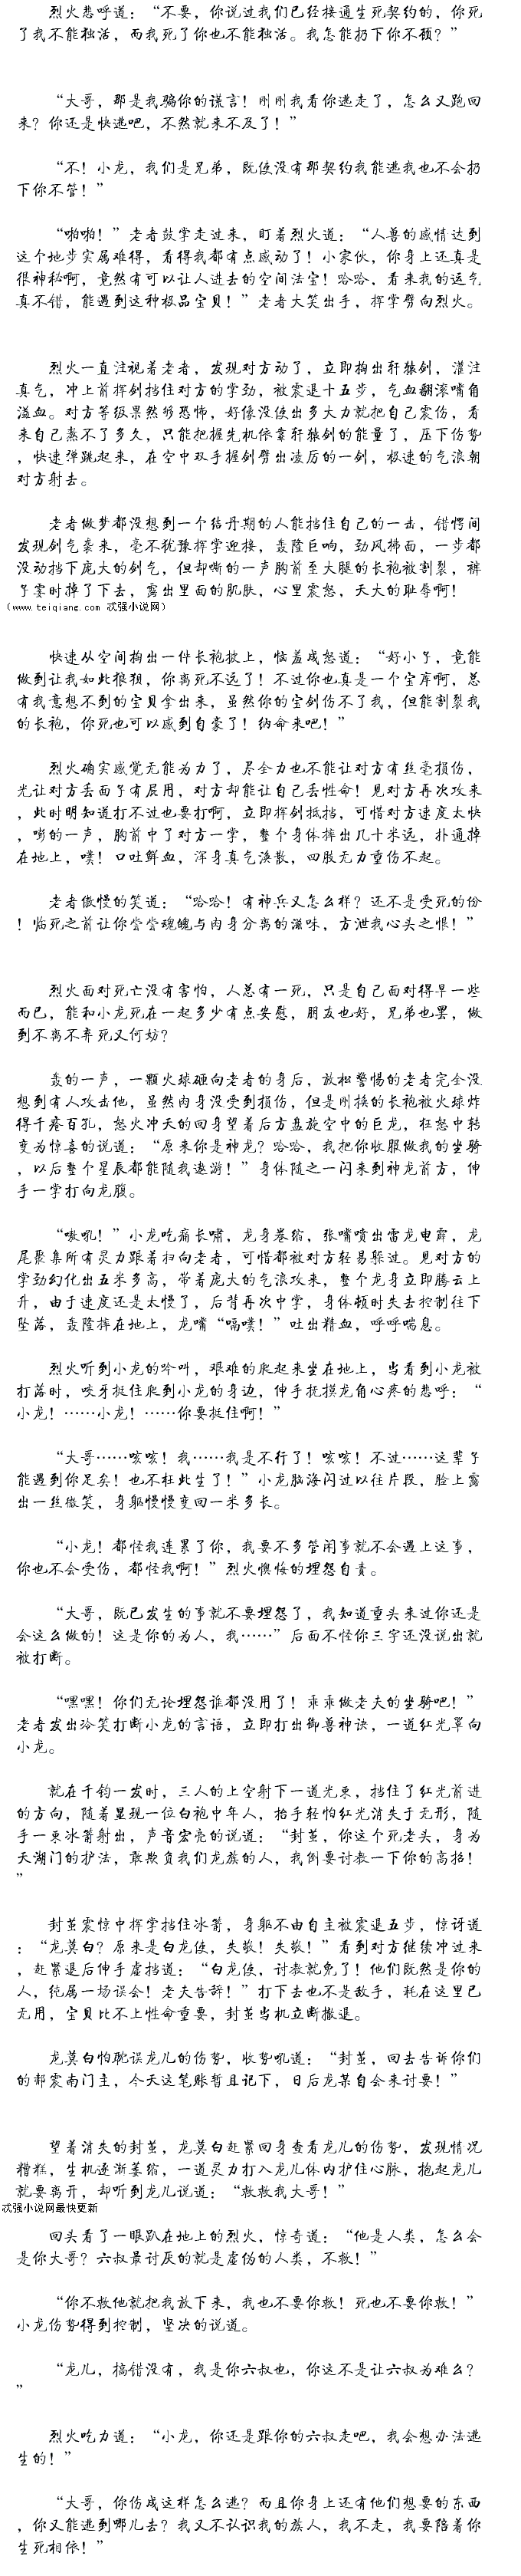 烈火悲呼道：“不要，你说过我们已经接通生死契约的，你死
了我不能独活，而我死了你也不能独活。我怎能扔下你不顾？”
“大哥，那是我骗你的谎言！刚刚我看你逃走了，怎么又跑回
来？你还是快逃吧，不然就来不及了！”
“不！小龙，我们是兄弟，既使没有那契约我能逃我也不会扔
下你不管！”
“啪啪！”老者鼓掌走过来，盯着烈火道：“人兽的感情达到
这个地步实属难得，看得我都有点感动了！小家伙，你身上还真是
很神秘啊，竟然有可以让人进去的空间法宝！哈哈，看来我的运气
真不错，能遇到这种极品宝贝！”老者大笑出手，挥掌劈向烈火。
烈火一直注视着老者，发现对方动了，立即掏出轩辕剑，灌注
真气，冲上前挥剑挡住对方的掌劲，被震退十五步，气血翻滚嘴角
溢血。对方等级果然够恐怖，好像没使出多大力就把自己震伤，看
来自己熬不了多久，只能把握先机依靠轩辕剑的能量了，压下伤势
，快速弹跳起来，在空中双手握剑劈出凌厉的一剑，极速的气浪朝
对方射去。
老者做梦都没想到一个结丹期的人能挡住自己的一击，错愕间
发现剑气袭来，毫不犹豫挥掌迎接，轰隆巨响，劲风拂面，一步都
没动挡下庞大的剑气，但却嘶的一声胸前至大腿的长袍被割裂，裤
子霎时掉了下去，露出里面的肌肤，心里震怒，天大的耻辱啊！
（www.teiqiang.com 忒强小说网）
快速从空间掏出一件长袍披上，恼羞成怒道：“好小子，竟能
做到让我如此狼狈，你离死不远了！不过你也真是一个宝库啊，总
有我意想不到的宝贝拿出来，虽然你的宝剑伤不了我，但能割裂我
的长袍，你死也可以感到自豪了！纳命来吧！”
烈火确实感觉无能为力了，尽全力也不能让对方有丝毫损伤，
光让对方丢面子有屁用，对方却能让自己丢性命！见对方再次攻来
，此时明知道打不过也要打啊，立即挥剑抵挡，可惜对方速度太快
，嘭的一声，胸前中了对方一掌，整个身体摔出几十米远，扑通掉
在地上，噗！口吐鲜血，浑身真气涣散，四肢无力重伤不起。
老者傲慢的笑道：“哈哈！有神兵又怎么样？还不是受死的份
！临死之前让你尝尝魂魄与肉身分离的滋味，方泄我心头之恨！”
烈火面对死亡没有害怕，人总有一死，只是自己面对得早一些
而已，能和小龙死在一起多少有点安慰，朋友也好，兄弟也罢，做
到不离不弃死又何妨？
轰的一声，一颗火球砸向老者的身后，放松警惕的老者完全没
想到有人攻击他，虽然肉身没受到损伤，但是刚换的长袍被火球炸
得千疮百孔，怒火冲天的回身望着后方盘旋空中的巨龙，狂怒中转
变为惊喜的说道：“原来你是神龙？哈哈，我把你收服做我的坐骑
，以后整个星辰都能随我遨游！”身体随之一闪来到神龙前方，伸
手一掌打向龙腹。
“嗷吼！”小龙吃痛长啸，龙身卷缩，张嘴喷出雷龙电霹，龙
尾聚集所有灵力跟着扫向老者，可惜都被对方轻易躲过。见对方的
掌劲幻化出五米多高，带着庞大的气浪攻来，整个龙身立即腾云上
升，由于速度还是太慢了，后背再次中掌，身体顿时失去控制往下
坠落，轰隆摔在地上，龙嘴“嗝噗！”吐出精血，呼呼喘息。
烈火听到小龙的吟叫，艰难的爬起来坐在地上，当看到小龙被
打落时，咬牙挺住爬到小龙的身边，伸手抚摸龙角心疼的悲呼：“
小龙！……小龙！……你要挺住啊！”
“大哥……咳咳！我……我是不行了！咳咳！不过……这辈子
能遇到你足矣！也不枉此生了！”小龙脑海闪过以往片段，脸上露
出一丝微笑，身躯慢慢变回一米多长。
“小龙！都怪我连累了你，我要不多管闲事就不会遇上这事，
你也不会受伤，都怪我啊！”烈火懊悔的埋怨自责。
“大哥，既已发生的事就不要埋怨了，我知道重头来过你还是
会这么做的！这是你的为人，我……”后面不怪你三字还没说出就
被打断。
“嘿嘿！你们无论埋怨谁都没用了！乖乖做老夫的坐骑吧！”
老者发出冷笑打断小龙的言语，立即打出御兽神诀，一道红光罩向
小龙。
就在千钧一发时，三人的上空射下一道光束，挡住了红光前进
的方向，随着显现一位白袍中年人，抬手轻拍红光消失于无形，随
手一束冰箭射出，声音宏亮的说道：“封茧，你这个死老头，身为
天湖门的护法，敢欺负我们龙族的人，我倒要讨教一下你的高招！
”
封茧震惊中挥掌挡住冰箭，身躯不由自主被震退五步，惊讶道
：“龙莫白？原来是白龙使，失敬！失敬！”看到对方继续冲过来
，赶紧退后伸手虚挡道：“白龙使，讨教就免了！他们既然是你的
人，纯属一场误会！老夫告辞！”打下去也不是敌手，耗在这里已
无用，宝贝比不上性命重要，封茧当机立断撤退。
龙莫白怕耽误龙儿的伤势，收势吼道：“封茧，回去告诉你们
的郝震南门主，今天这笔账暂且记下，日后龙某自会来讨要！”
望着消失的封茧，龙莫白赶紧回身查看龙儿的伤势，发现情况
糟糕，生机逐渐萎缩，一道灵力打入龙儿体内护住心脉，抱起龙儿
就要离开，却听到龙儿说道：“救救我大哥！”
忒强小说网最快更新
回头看了一眼趴在地上的烈火，惊奇道：“他是人类，怎么会
是你大哥？六叔最讨厌的就是虚伪的人类，不救！”
“你不救他就把我放下来，我也不要你救！死也不要你救！”
小龙伤势得到控制，坚决的说道。
“龙儿，搞错没有，我是你六叔也，你这不是让六叔为难么？
”
烈火吃力道：“小龙，你还是跟你的六叔走吧，我会想办法逃
生的！”
“大哥，你伤成这样怎么逃？而且你身上还有他们想要的东西
，你又能逃到哪儿去？我又不认识我的族人，我不走，我要陪着你
生死相依！”